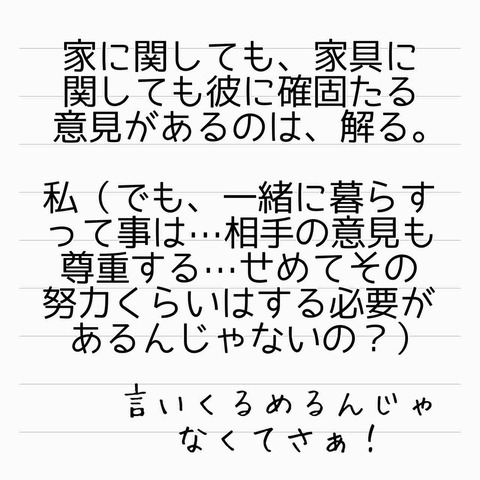 家に関しても、家具に
関しても彼に確固たる
意見があるのは、解る。
私（でも、一緒に暮らす
って事は…相手の意見も
尊重する…せめてその
努力くらいはする必要が
あるんじゃないの？）
言いくるめるんじゃ
なくてさぁ！